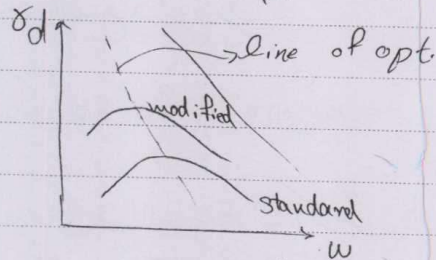 γd
line of opt.
modified
standard
w